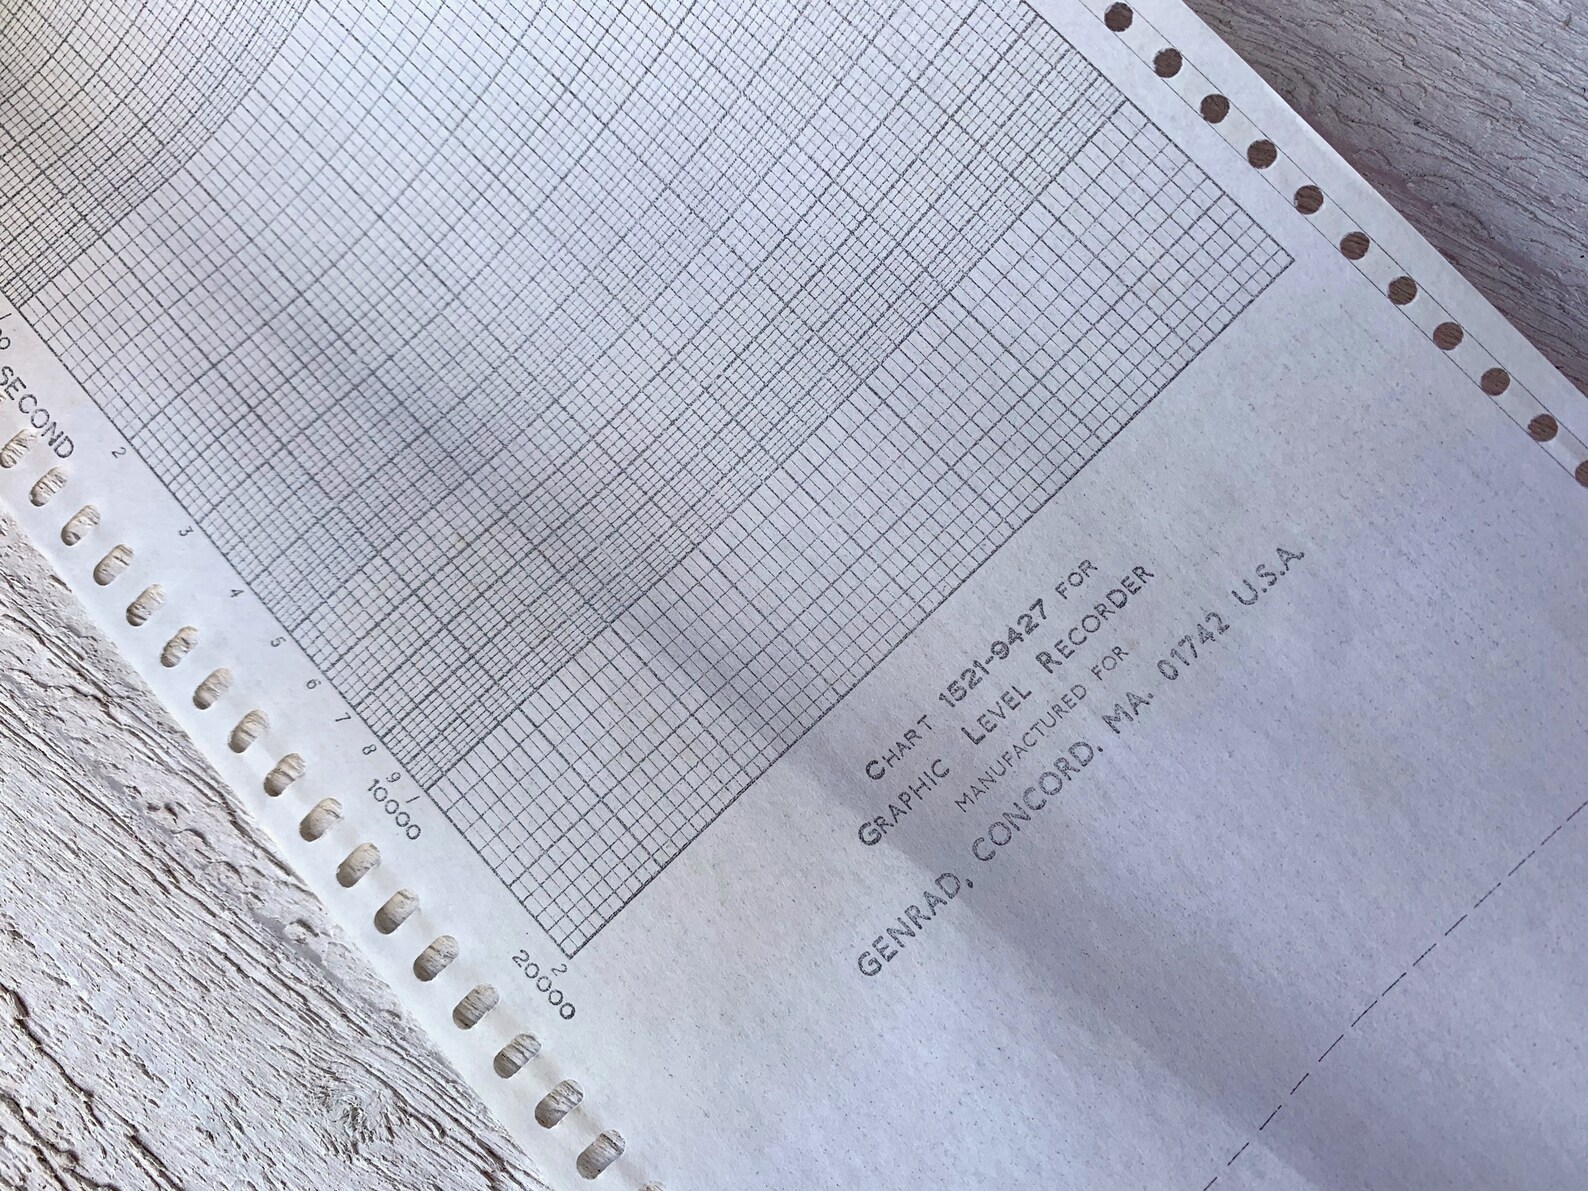 SECOND
2
3
4
5
6
7
8
9
1
10000
2
20000
CHART 1521-9427 FOR
GRAPHIC LEVEL RECORDER
MANUFACTURED FOR
GENRAD, CONCORD, MA. 01742 U.S.A.